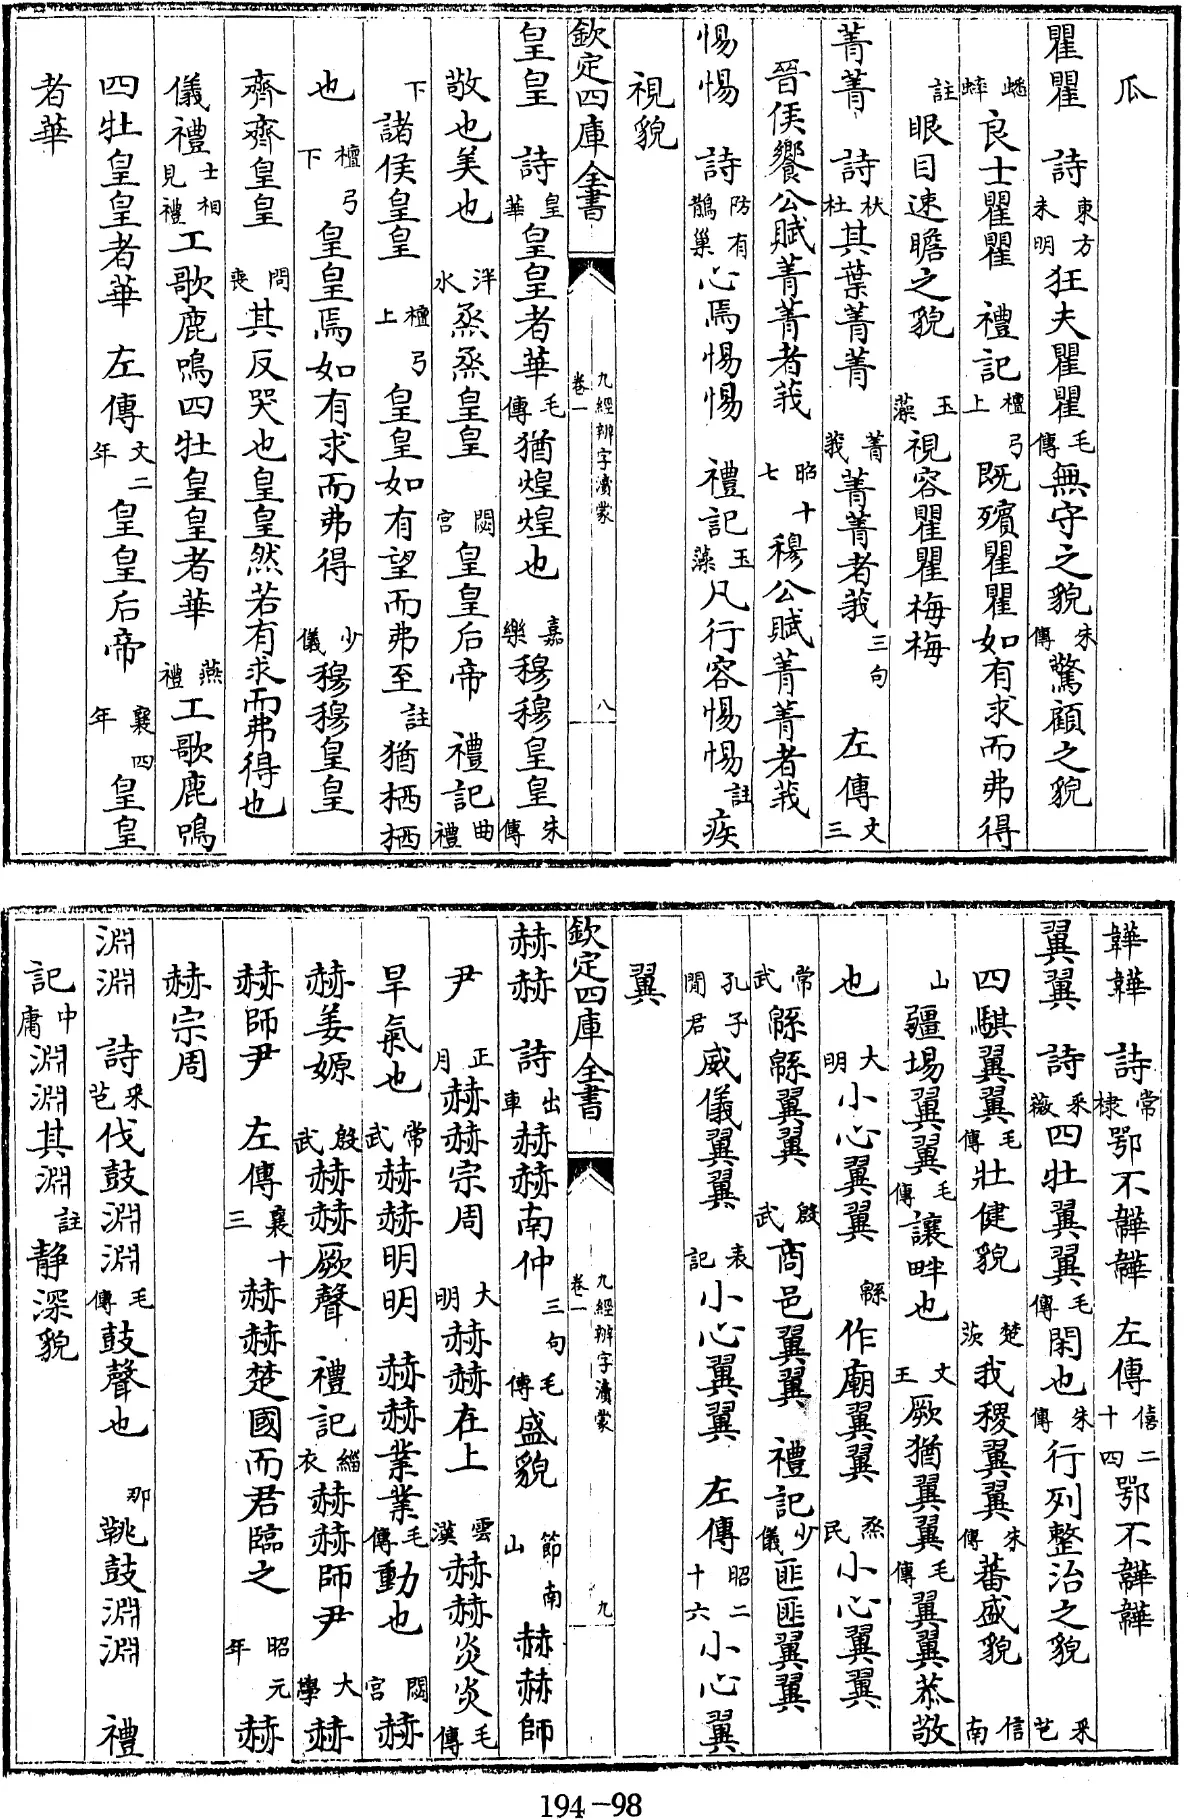 瓜
瞿瞿　詩東方未明狂夫瞿瞿毛傳無守之貌朱傳驚顧之貌
蟋蟀良士瞿瞿　禮記檀弓上既殯瞿瞿如有求而弗得
註眼目速瞻之貌　玉藻視容瞿瞿梅梅
菁菁　詩杕杜其葉菁菁　菁莪菁菁者莪三句　左傳文三
晉侯饗公賦菁菁者莪　昭十七穆公賦菁菁者莪
惕惕　詩防有鵲巢心焉惕惕　禮記玉藻凡行容惕惕註疾
視貌
欽定四庫全書　九經辨字瀆蒙　卷一　八
皇皇　詩皇華皇皇者華毛傳猶煌煌也　嘉樂穆穆皇皇朱傳
敬也美也　泮水烝烝皇皇　閟宮皇皇后帝　禮記曲禮
下諸侯皇皇　檀弓上皇皇如有望而弗至註猶栖栖
也　檀弓下皇皇焉如有求而弗得　少儀穆穆皇皇
齊齊皇皇　問喪其反哭也皇皇然若有求而弗得也
儀禮士相見禮工歌鹿鳴四牡皇皇者華　燕禮工歌鹿鳴
四牡皇皇者華　左傳文二年皇皇后帝　襄四年皇皇
者華
韡韡　詩常棣鄂不韡韡　左傳僖二十四鄂不韡韡
翼翼　詩采薇四牡翼翼毛傳閑也朱傳行列整治之貌　采芑
四騏翼翼毛傳壯健貌　楚茨我稷翼翼朱傳蕃盛貌　信南
山疆場翼翼毛傳讓畔也　文王厥猶翼翼毛傳翼翼恭敬
也　大明小心翼翼　緜作廟翼翼　烝民小心翼翼
常武緜緜翼翼　殷武商邑翼翼　禮記少儀匪匪翼翼
孔子閒君威儀翼翼　表記小心翼翼　左傳昭二十六小心翼
翼
欽定四庫全書　九經辨字瀆蒙　卷一　九
赫赫　詩出車赫赫南仲三句　毛傳盛貌　節南山赫赫師
尹　正月赫赫宗周　大明赫赫在上　雲漢赫赫炎炎毛傳
旱氣也　常武赫赫明明　赫赫業業毛傳動也　閟宮赫
赫姜嫄　殷武赫赫厥聲　禮記緇衣赫赫師尹　大學赫
赫師尹　左傳襄十三赫赫楚國而君臨之　昭元年赫
赫宗周
淵淵　詩采芑伐鼓淵淵毛傳鼓聲也　那鞉鼓淵淵　禮
記中庸淵淵其淵註靜深貌
194-98